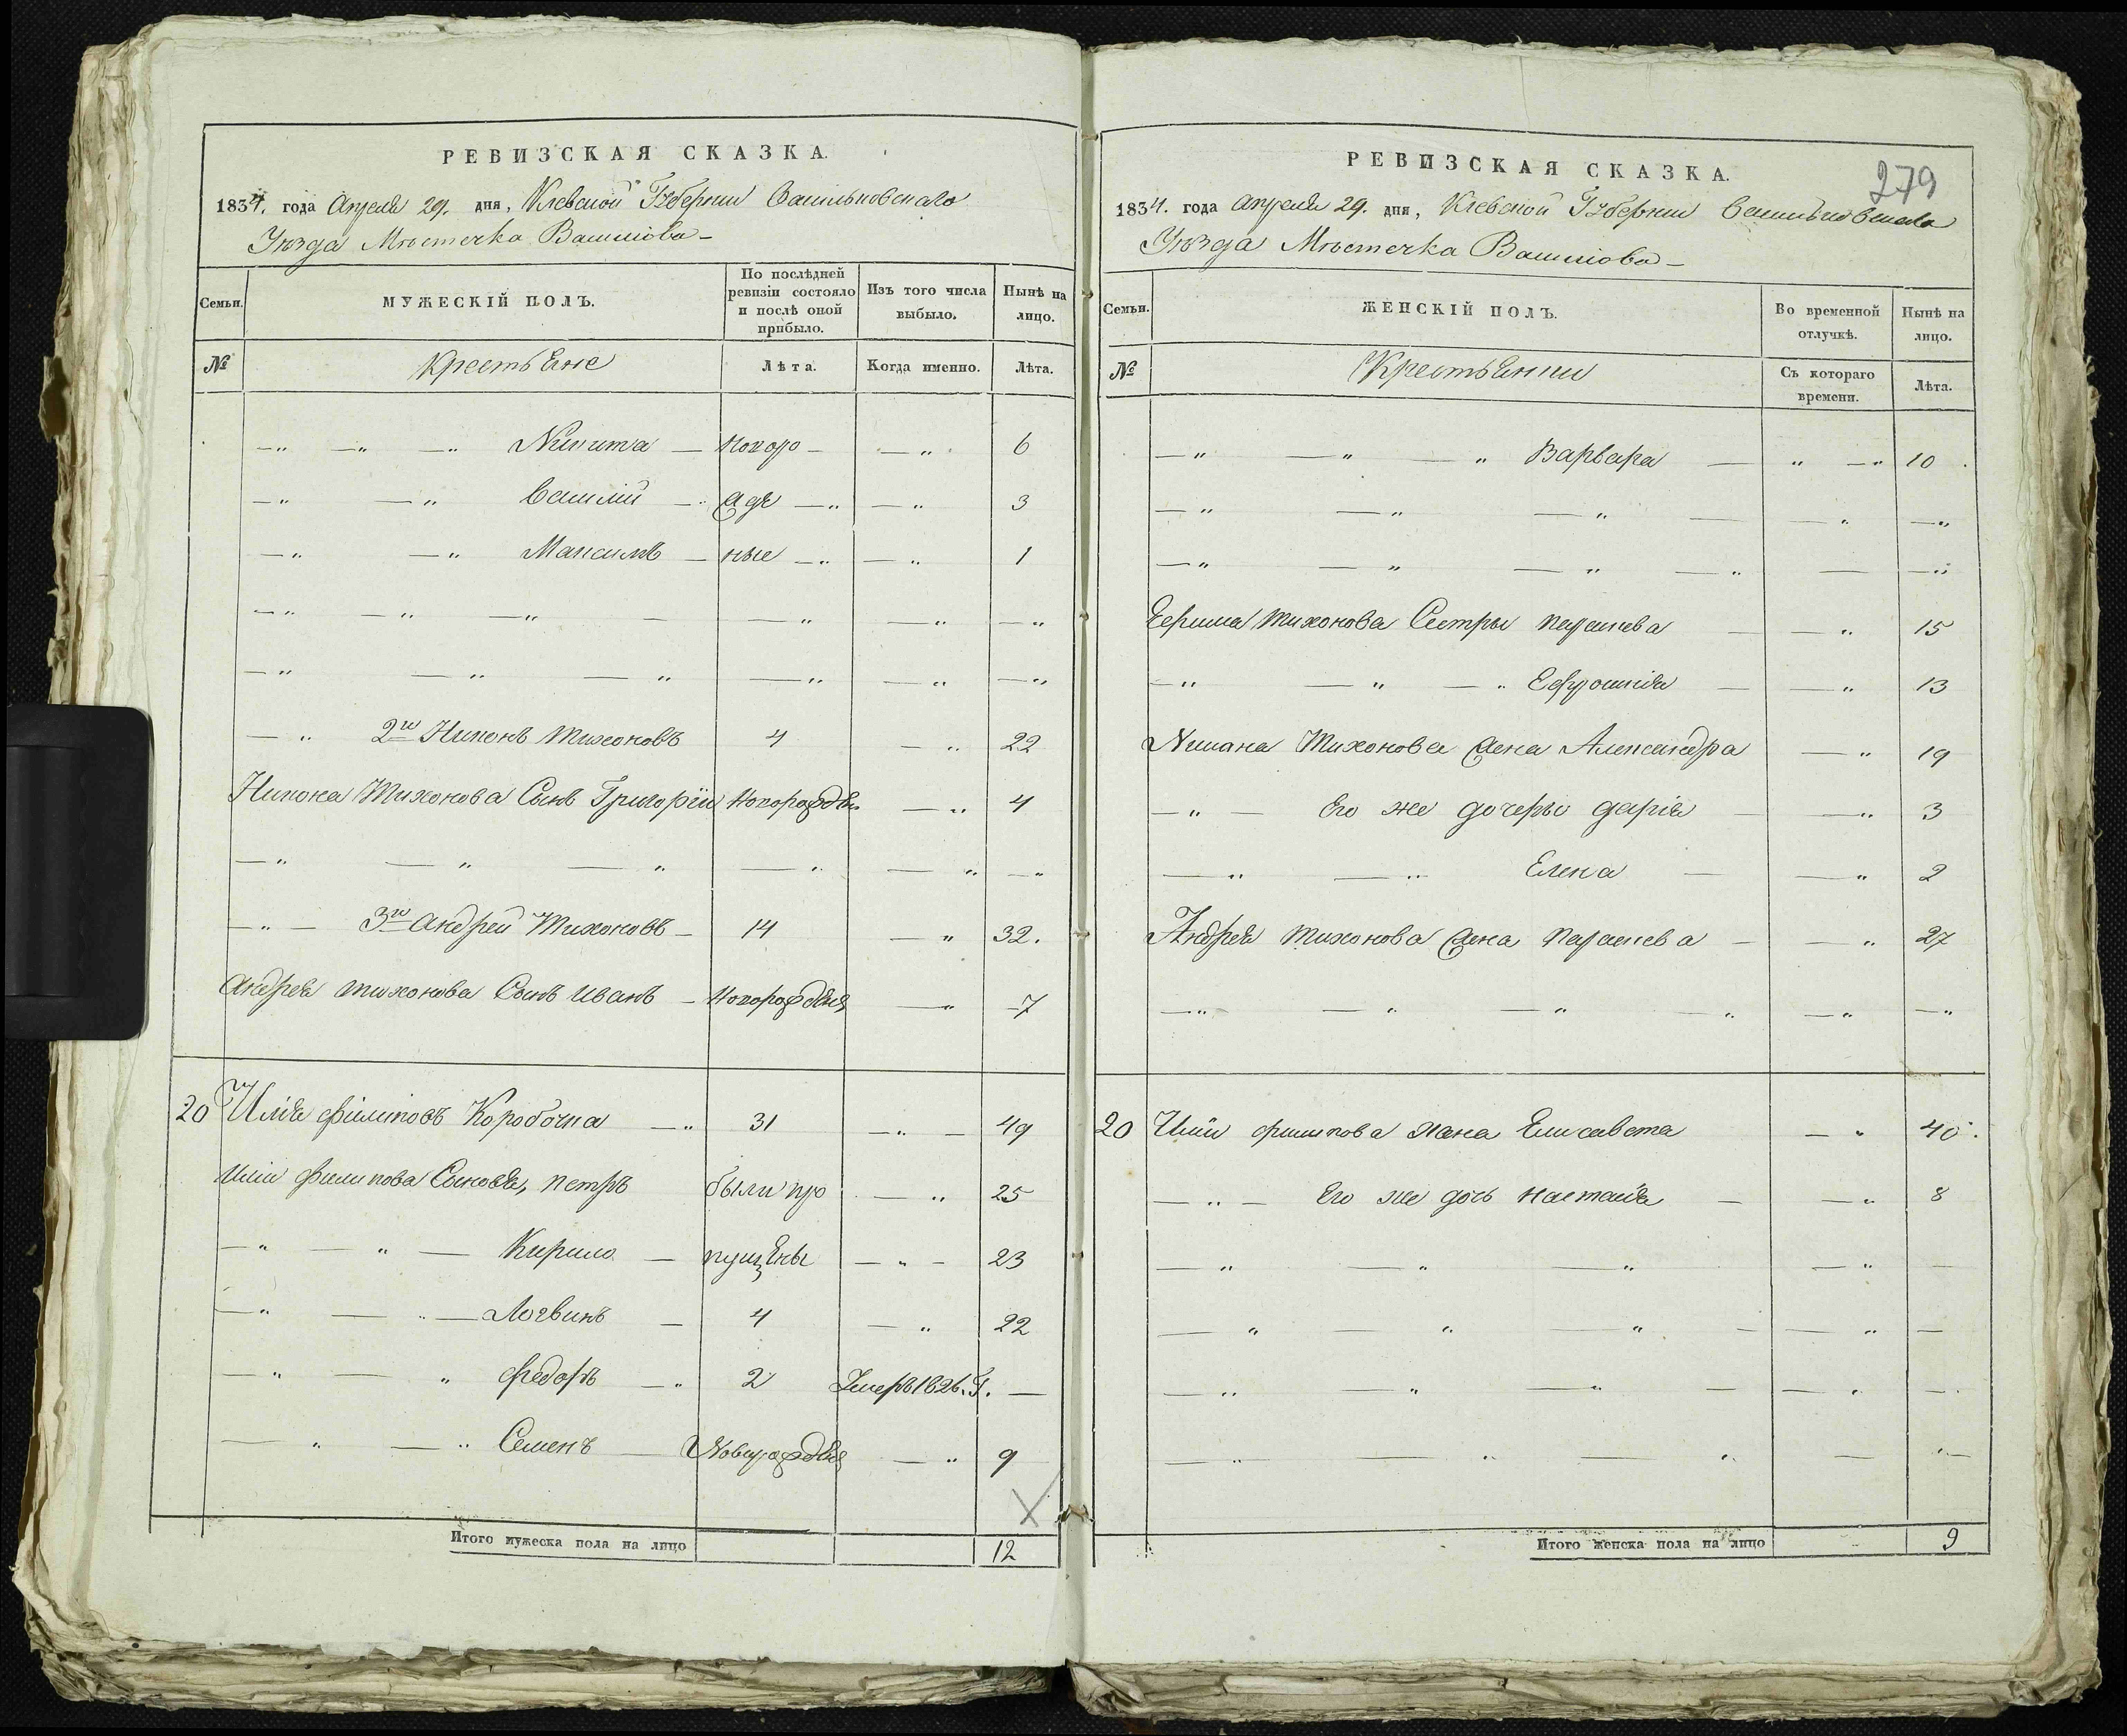 РЕВИЗСКАЯ СКАЗКА.
1834. года Апреля 29. дня, Киевской Губернии Васильковского
Уезда Местечка
Семьи. МУЖЕСКІЙ ПОЛЪ. По послѣдней ревизіи состояло и послѣ оной прибыло. Изъ того числа выбыло. Нынѣ на лицо.
№ Крестьяне Лѣта. Когда именно. Лѣта.
—„ —„ —„ Никита — Новоро — —„ 6
—„ —„ Василій — жде —„ —„ 3
—„ —„ Максимъ — ные —„ —„ 1
—„ 2й Никонъ Тихоновъ 4 —„ 22
Никона Тихонова Сынъ Григорій Новорожден —„ 4
—„ — 3й Андрей Тихоновъ — 14 —„ 32.
Андрея Тихонова Сынъ Иванъ — Новорожден —„ 7
20 Илія Филиповъ Коробочка —„ 31 —„— 49
Иліи Филипова Сыновья, Петръ были про —„ 25
—„ —„ — Кирило — пущены —„— 23
—„ —„— Логвинъ — 4 —„ 22
—„ —„ Федоръ —„ 2 Умеръ 1826. Г. —
—„ —„ Семенъ — Новорожден —„ 9
Итого мужеска пола на лицо 12
РЕВИЗСКАЯ СКАЗКА.
279
1834. года Апреля 29. дня, Киевской Губернии Васильковского
Уезда Местечка
Семьи. ЖЕНСКІЙ ПОЛЪ. Во временной отлучкѣ. Нынѣ на лицо.
№ Крестьянки Съ котораго времени. Лѣта.
—„ —„ —„ Варвара — „ —„ 10
Тихонова Сестры Параскева — —„ 15
—„ —„ —„ Ефросинія — —„ 13
Никона Тихонова жена Александра —„ 19
—„— Его же дочеры Дарія — —„ 3
—„ —„ Елена — —„ 2
Андрея Тихонова жена Параскева — —„ 27
20 Иліи Филипова жена Елисавета —„ 40.
—„— Его же дочь Настасія — —„ 8
Итого женска пола на лицо 9